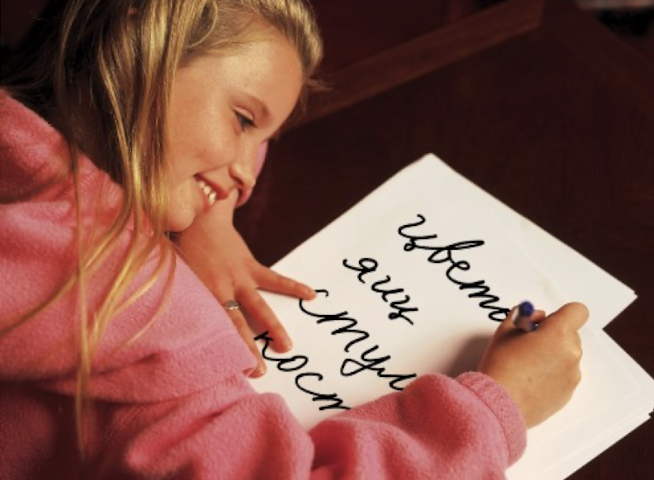 цвето
яиц
стул
кост